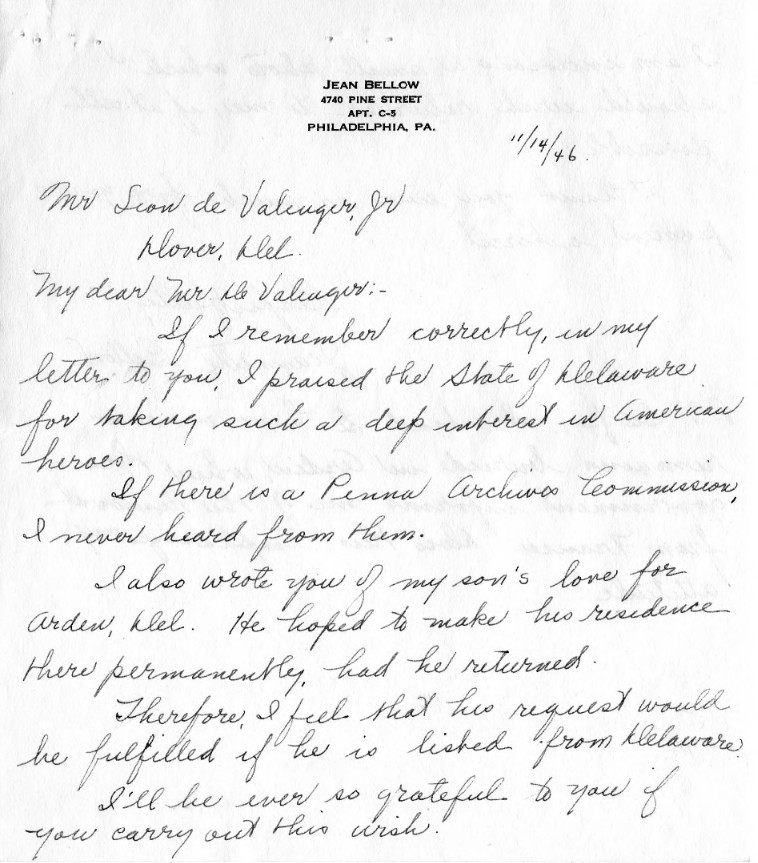 JEAN BELLOW
4740 PINE STREET
APT. C-5
PHILADELPHIA, PA.
11/14/46.
Mr Leon de Valinger, Jr
Dover, Del.
My dear Mr De Valinger:-
If I remember correctly, in my
letter to you, I praised the State of Delaware
for taking such a deep interest in American
heroes.
If there is a Penna Archives Commission,
I never heard from them.
I also wrote you of my son's love for
Arden, Del. He hoped to make his residence
there permanently, had he returned.
Therefore, I feel that his request would
be fulfilled if he is listed from Delaware.
I'll be ever so grateful to you if
you carry out this wish.